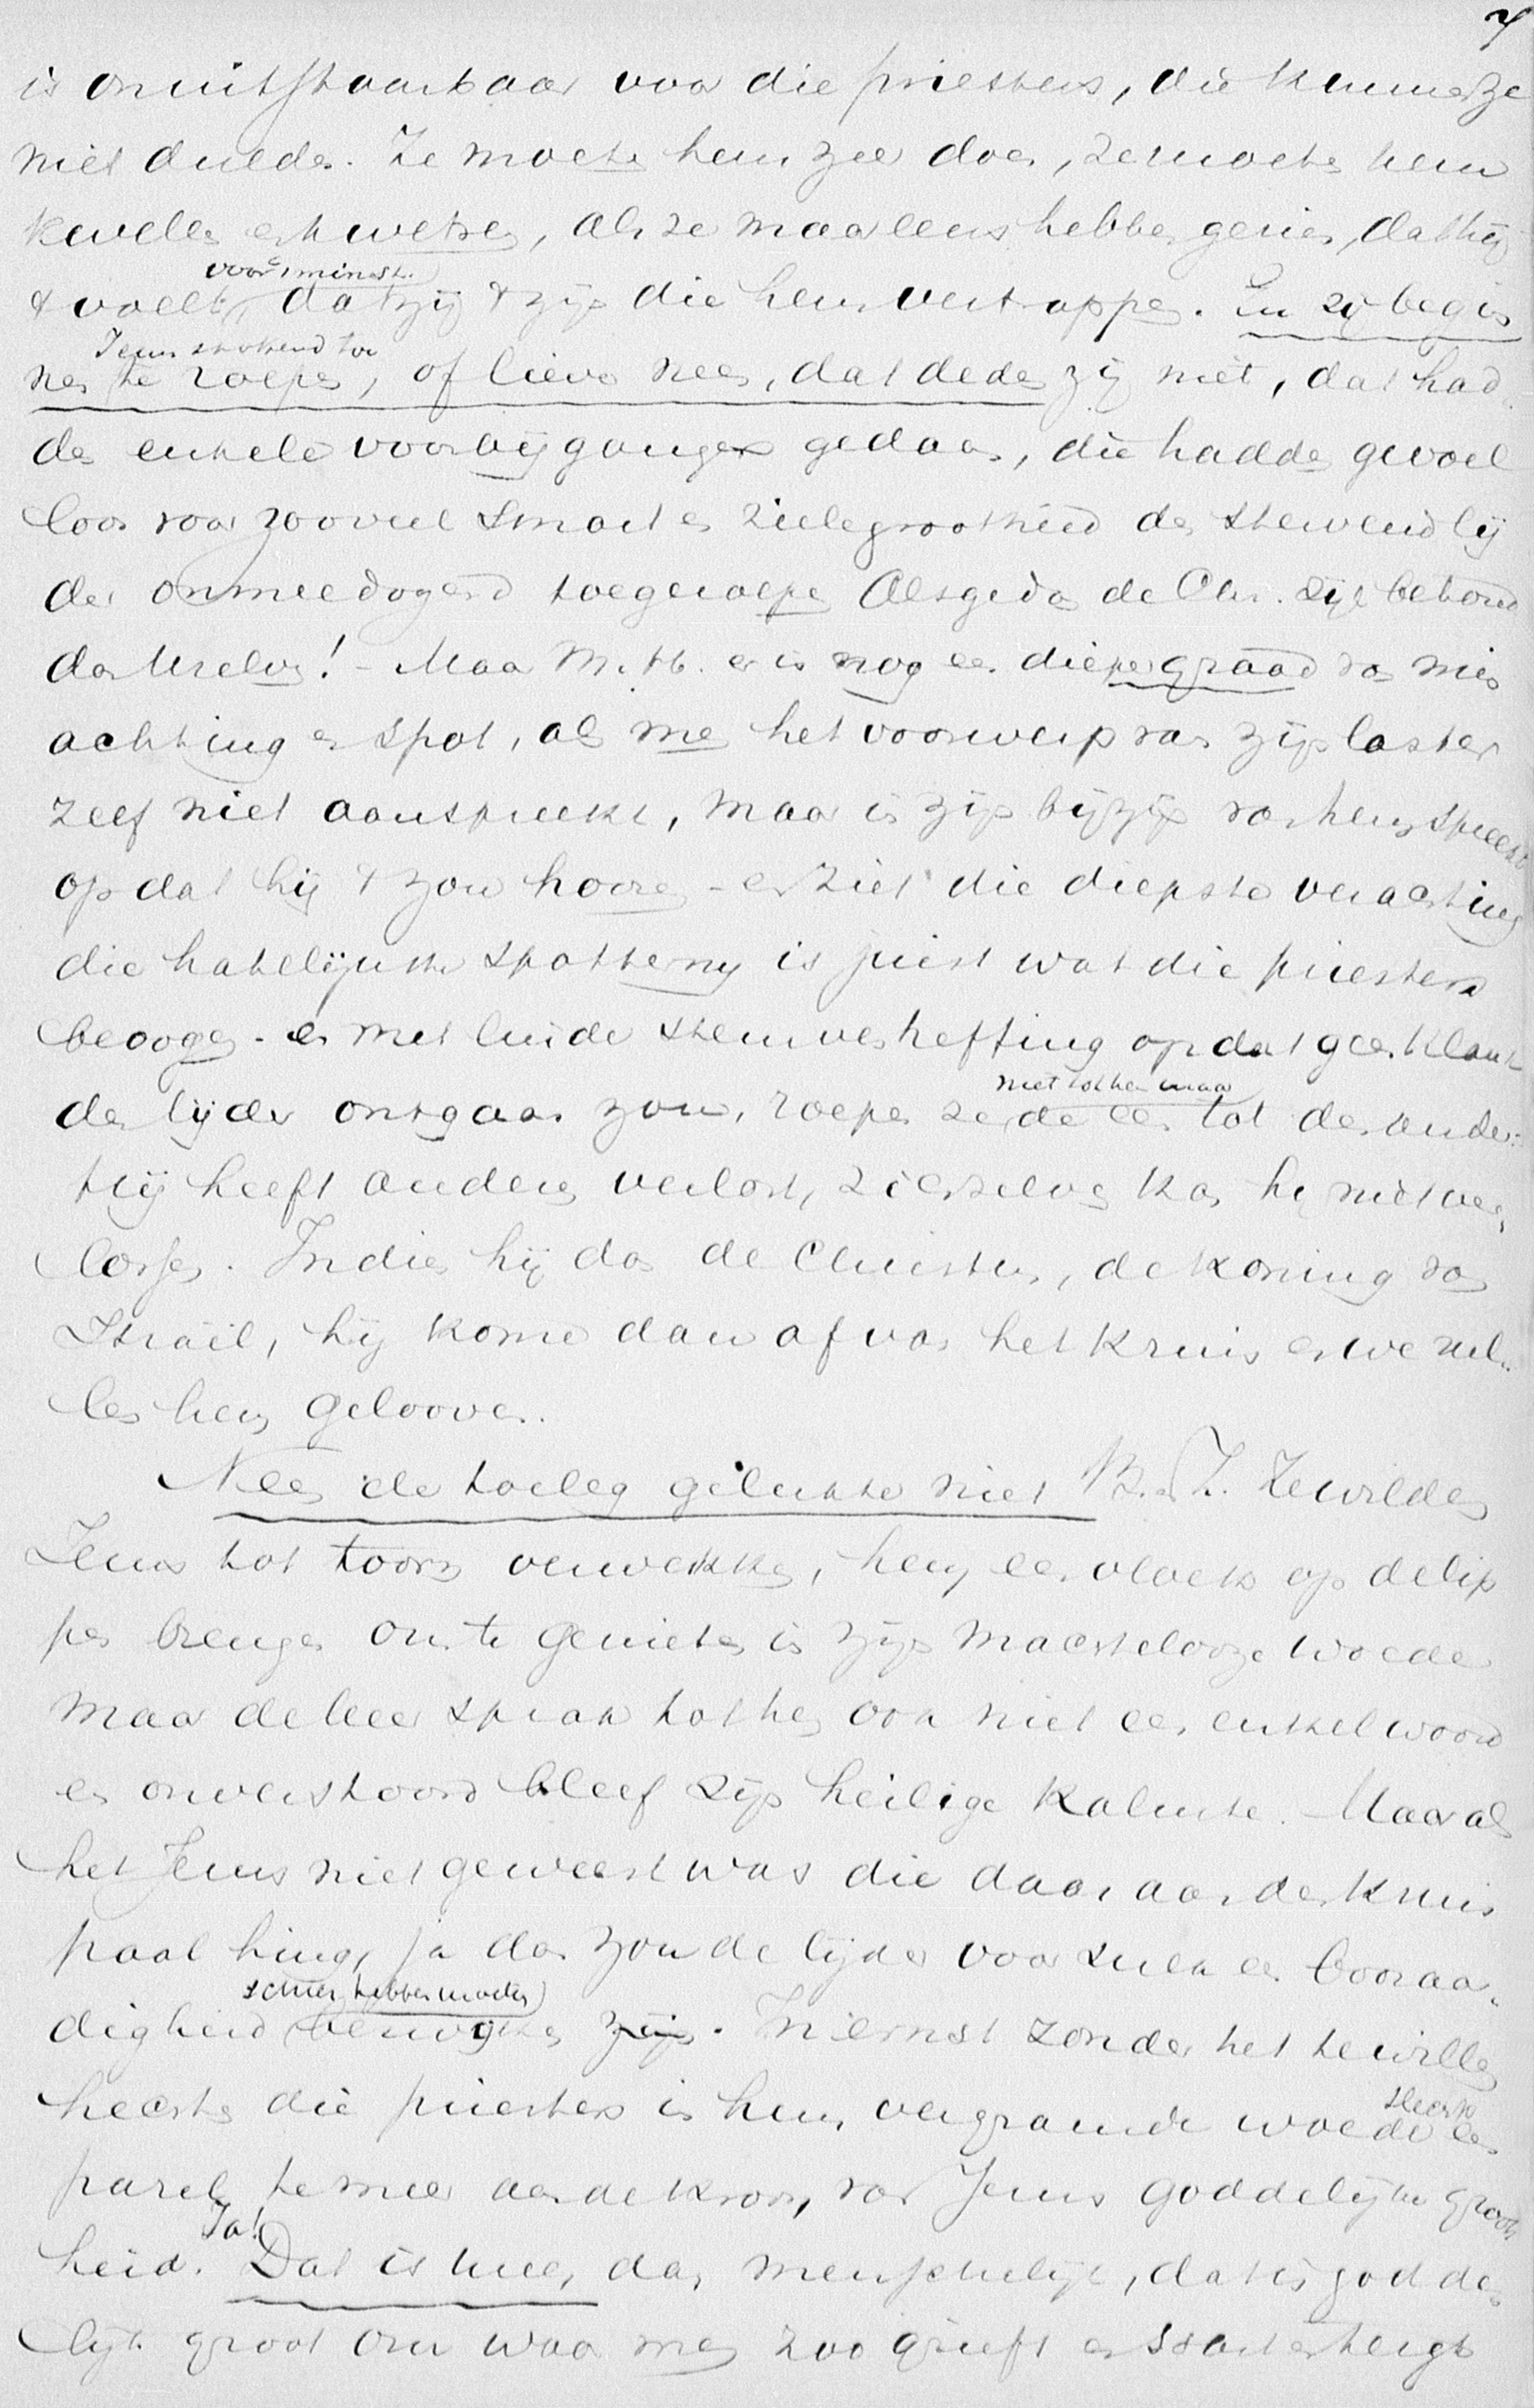 7
is onuitstaanbaar voor die priesters, die kunnen ze
niet dulden. Ze moeten hem zeer doen, ze moeten hem
kwellen en kwetsen, als ze maar eens hebben gezien, dat hij
voor 't minst
't voelt, dat zij 't zijn die hem vertrappen. En zij begin
Jezus spottend toe
nen te roepen, of liever neen, dat deden zij niet, dat had
den enkele voorbijgangers gedaan, die hadden gevoel
loos voor zooveel smart en zielegrootheid den stervend lij
der onmeedogend toegeroepen Als gij dan de Chr. zijt behoud
dan Uzelven! - Maar M. H. er is nog een dieper graad van min
achting en spot, als men het voorwerp van zijn laster
zelf niet aanspreekt, maar in zijn bijzijn van hem spreekt
opdat hij 't zou hooren - en ziet die diepste verachting
die hatelijkste spotternij is juist wat die priesters
beoogen. en met luide stemverheffing opdat geen klank
niet tot hem maar
den lijder ontgaan zou, roepen ze de een tot den ander:
Hij heeft anderen verlost, zichzelven kan hij niet ver
lossen. Indien hij dan de Christus, de koning van
Israël, hij kome dan af van het kruis en we zul
len hem gelooven.
Neen de toeleg gelukte niet B. Z. Ze wilden
Jezus tot toorn verwekken, hem een vloek op de lip
pen brengen om te genieten in zijn machtelooze woede
maar de Heer sprak tot hen ook niet een enkel woord
en onverstoord bleef zijn heilige kalmte. - Maar als
het Jezus niet geweest was die daar aan den kruis
paal hing, ja dan zou de lijder voor zulk een boosaar
schier hebben moeten
digheid bezwijken zijn. In ernst zonder het te willen
slechts
hechten die priesters in hun vergramde woede een
parel te meer aan de kroon, van Jezus goddelijke groot
Ja!
heid. Dat is meer, dan menschelijk, dat is godde
lijk groot om waar men zoo grieft en smart en hergt